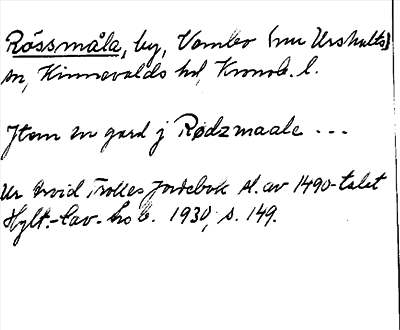 Rössmåla, by, Vembo [nu Urshults]
sn, Kinnevalds hd, Kronob. l.
Jtem en gard j Rødzmaale ...
Ur Arvid Trolles jordebok sl. av 1490-talet
Hylt.-Cav. ho b. 1930, s. 149.